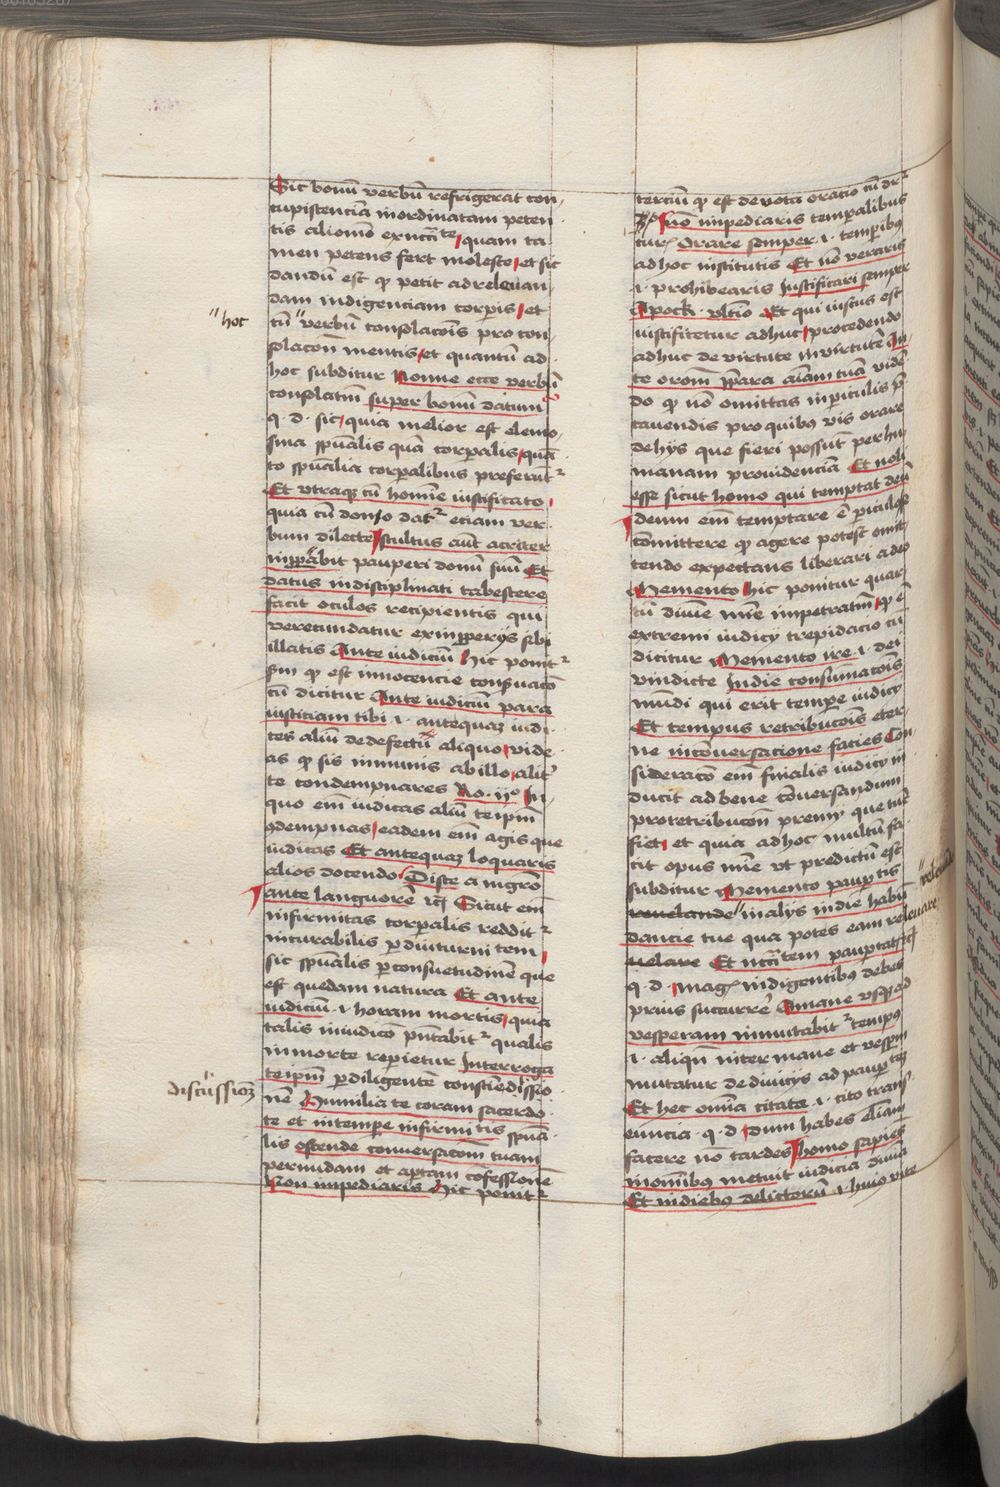 Sic bonū verbū refrigerat con-
cupiscenciā inordinatam peten
tis alimoīo ex nccitate, quam ta
men petens fert moleste, et sic
dandū est qd petit ad relevan
dam indigenciam corporis, et
cū "verbū consolacois pro con
solacon mentis, et quantū ad
hoc subditur Nonne ecce verbū
consolatm super bonū datum
q. d. sic, quia melior est elemo
sina spūalis quā corporalis, quā
to spūalia corporalibus preferunt
Et utraque cū homīe iustificato
quia cū dono dat etiam ver
bum dilecte, stultus autē acriter
improperabit pauperi donū suū Et
datus indisciplinati tabescere
facit oculos recipientis qui
verecundatur ex improperiis sibi
illatis Ante iudiciū Hic ponit
scdm qd est innocencie conservacō
cū dicitur Ante iudiciū para
iusticiam tibi .i. antequaz iudi
ces aliū de defectū aliquo, vide
as qd sis immunis ab illo, alit
te condempnares Ro. ijo In
quo em iudicas aliū te ipm
9dempnas, eadem em agis que
iudicas Et antequaz loquaris
alios docendo, Disce a nigro
ante languorē rc Sicut em
infirmitas corporalis reddit
incurabilis p diuturni tem
sic spūalis p consuetudinē que
est quedam natura Et ante
iudiciū .i. horam mortis, quia
talis in iudico pntabit qualis
in morte repietur Interroga
te ipm p diligentē conscie discussio
nē Humilia te coram sacerdo
te et in tempe infirmitis spūa
lis ostende conversacōm tuam
per nudam et aptam confessionē
Non impediaris Hic ponit
"hoc
discussionz
terciū qd est devota oratio cū dr
Non impediaris temporalibus
curis Orare semper .i. temporibus
ad hoc institutis Et nō veraris
.i. prohibearis Iustificari semper
Apock. ultīo Et qui iustus est
iustificetur adhuc, procedendo
adhuc de virtute in virtutē An
te oronm prepara aīam tuā vidē
do qd nō omittas in periculis p
cavendis pro quibus vis orare
de hys que fieri possūt per hu
manam providenciā Et noli
esse sicut homo qui temptat deū
deum em temptare ē periculose
comittere qd agere potest omit
tendo expectans liberari a deo
Memento Hic ponitur quar
tū divine mīe impetratm, qd ē
extremi iudicy trepidacio cū
dicitur Memento ire .i. dei
vindicte In die consumacois
mūdi qui erit tempe iudicy
Et tempus retribucois eter
ne in conversacione faciei Con
sideracō em finalis iudicy in
ducit ad bene conversandum
pro retribucon premy que tūc
fiet, et quia ad hoc multū fa
cit opus mīe ut predictū est
subditur Memento paupertis
revelande "in alys in die habū
dancie tue qua potes eam relevare
velare Et nccitatem paupertatis
q. d. magis indigentibus debes
prius succurre A mane usque ad
vesperam inmutabit tempus
.i. aliqn inter mane et vesperm
mutatur de divitys ad pauptatz
Et hec omīa citata .i. cito trans
euncia .q. d. dum habes elīam
facere no tardes, homo sapiens
in omībus metuit iudicia divīa
Et in diebus delictorū .i. huius vite